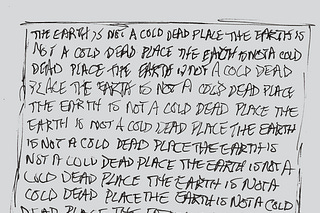 THE EARTH IS NOT A COLD DEAD PLACE THE EARTH IS
NOT A COLD DEAD PLACE THE EARTH IS NOT A COLD
DEAD PLACE THE EARTH IS NOT A COLD DEAD
PLACE THE EARTH IS NOT A COLD DEAD PLACE
THE EARTH IS NOT A COLD DEAD PLACE THE
EARTH IS NOT A COLD DEAD PLACE THE EARTH
IS NOT A COLD DEAD PLACE THE EARTH IS
NOT A COLD DEAD PLACE THE EARTH IS NOT A
COLD DEAD PLACE THE EARTH IS NOT A
COLD DEAD PLACE THE EARTH IS NOT A COLD
DEAD PLACE THE